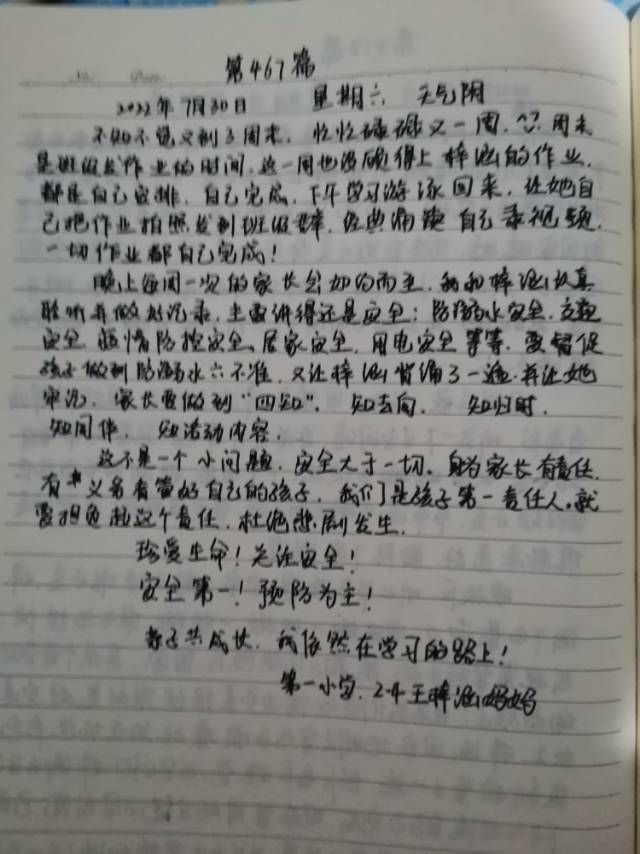 第467篇
2022年7月30日 星期六 天气阴
不知不觉又到了周末，忙忙碌碌又一周，周末
是班级发作业的时间，这一周也没顾得上梓涵的作业，
都是自己安排，自己完成，下午学习游泳回来，让她自
己把作业拍照发到班级群，经典诵读自己录视频，
一切作业都自己完成！
晚上每周一次的家长会如约而至，我和梓涵认真
聆听并做好记录，主要讲得还是安全：防溺水安全，交通
安全，疫情防控安全、居家安全，用电安全等等，要督促
孩子做到防溺水六不准，又让梓涵背诵了一遍，并让她
牢记，家长要做到“四知”，知去向，知归时，
知同伴，知活动内容，
这不是一个小问题，安全大于一切。身为家长有责任，
有义务有管好自己的孩子，我们是孩子第一责任人，就
要担负起这个责任，杜绝悲剧发生，
珍爱生命！关注安全！
安全第一！预防为主！
亲子共成长，我依然在学习的路上！
第一小学，2.4王梓涵妈妈